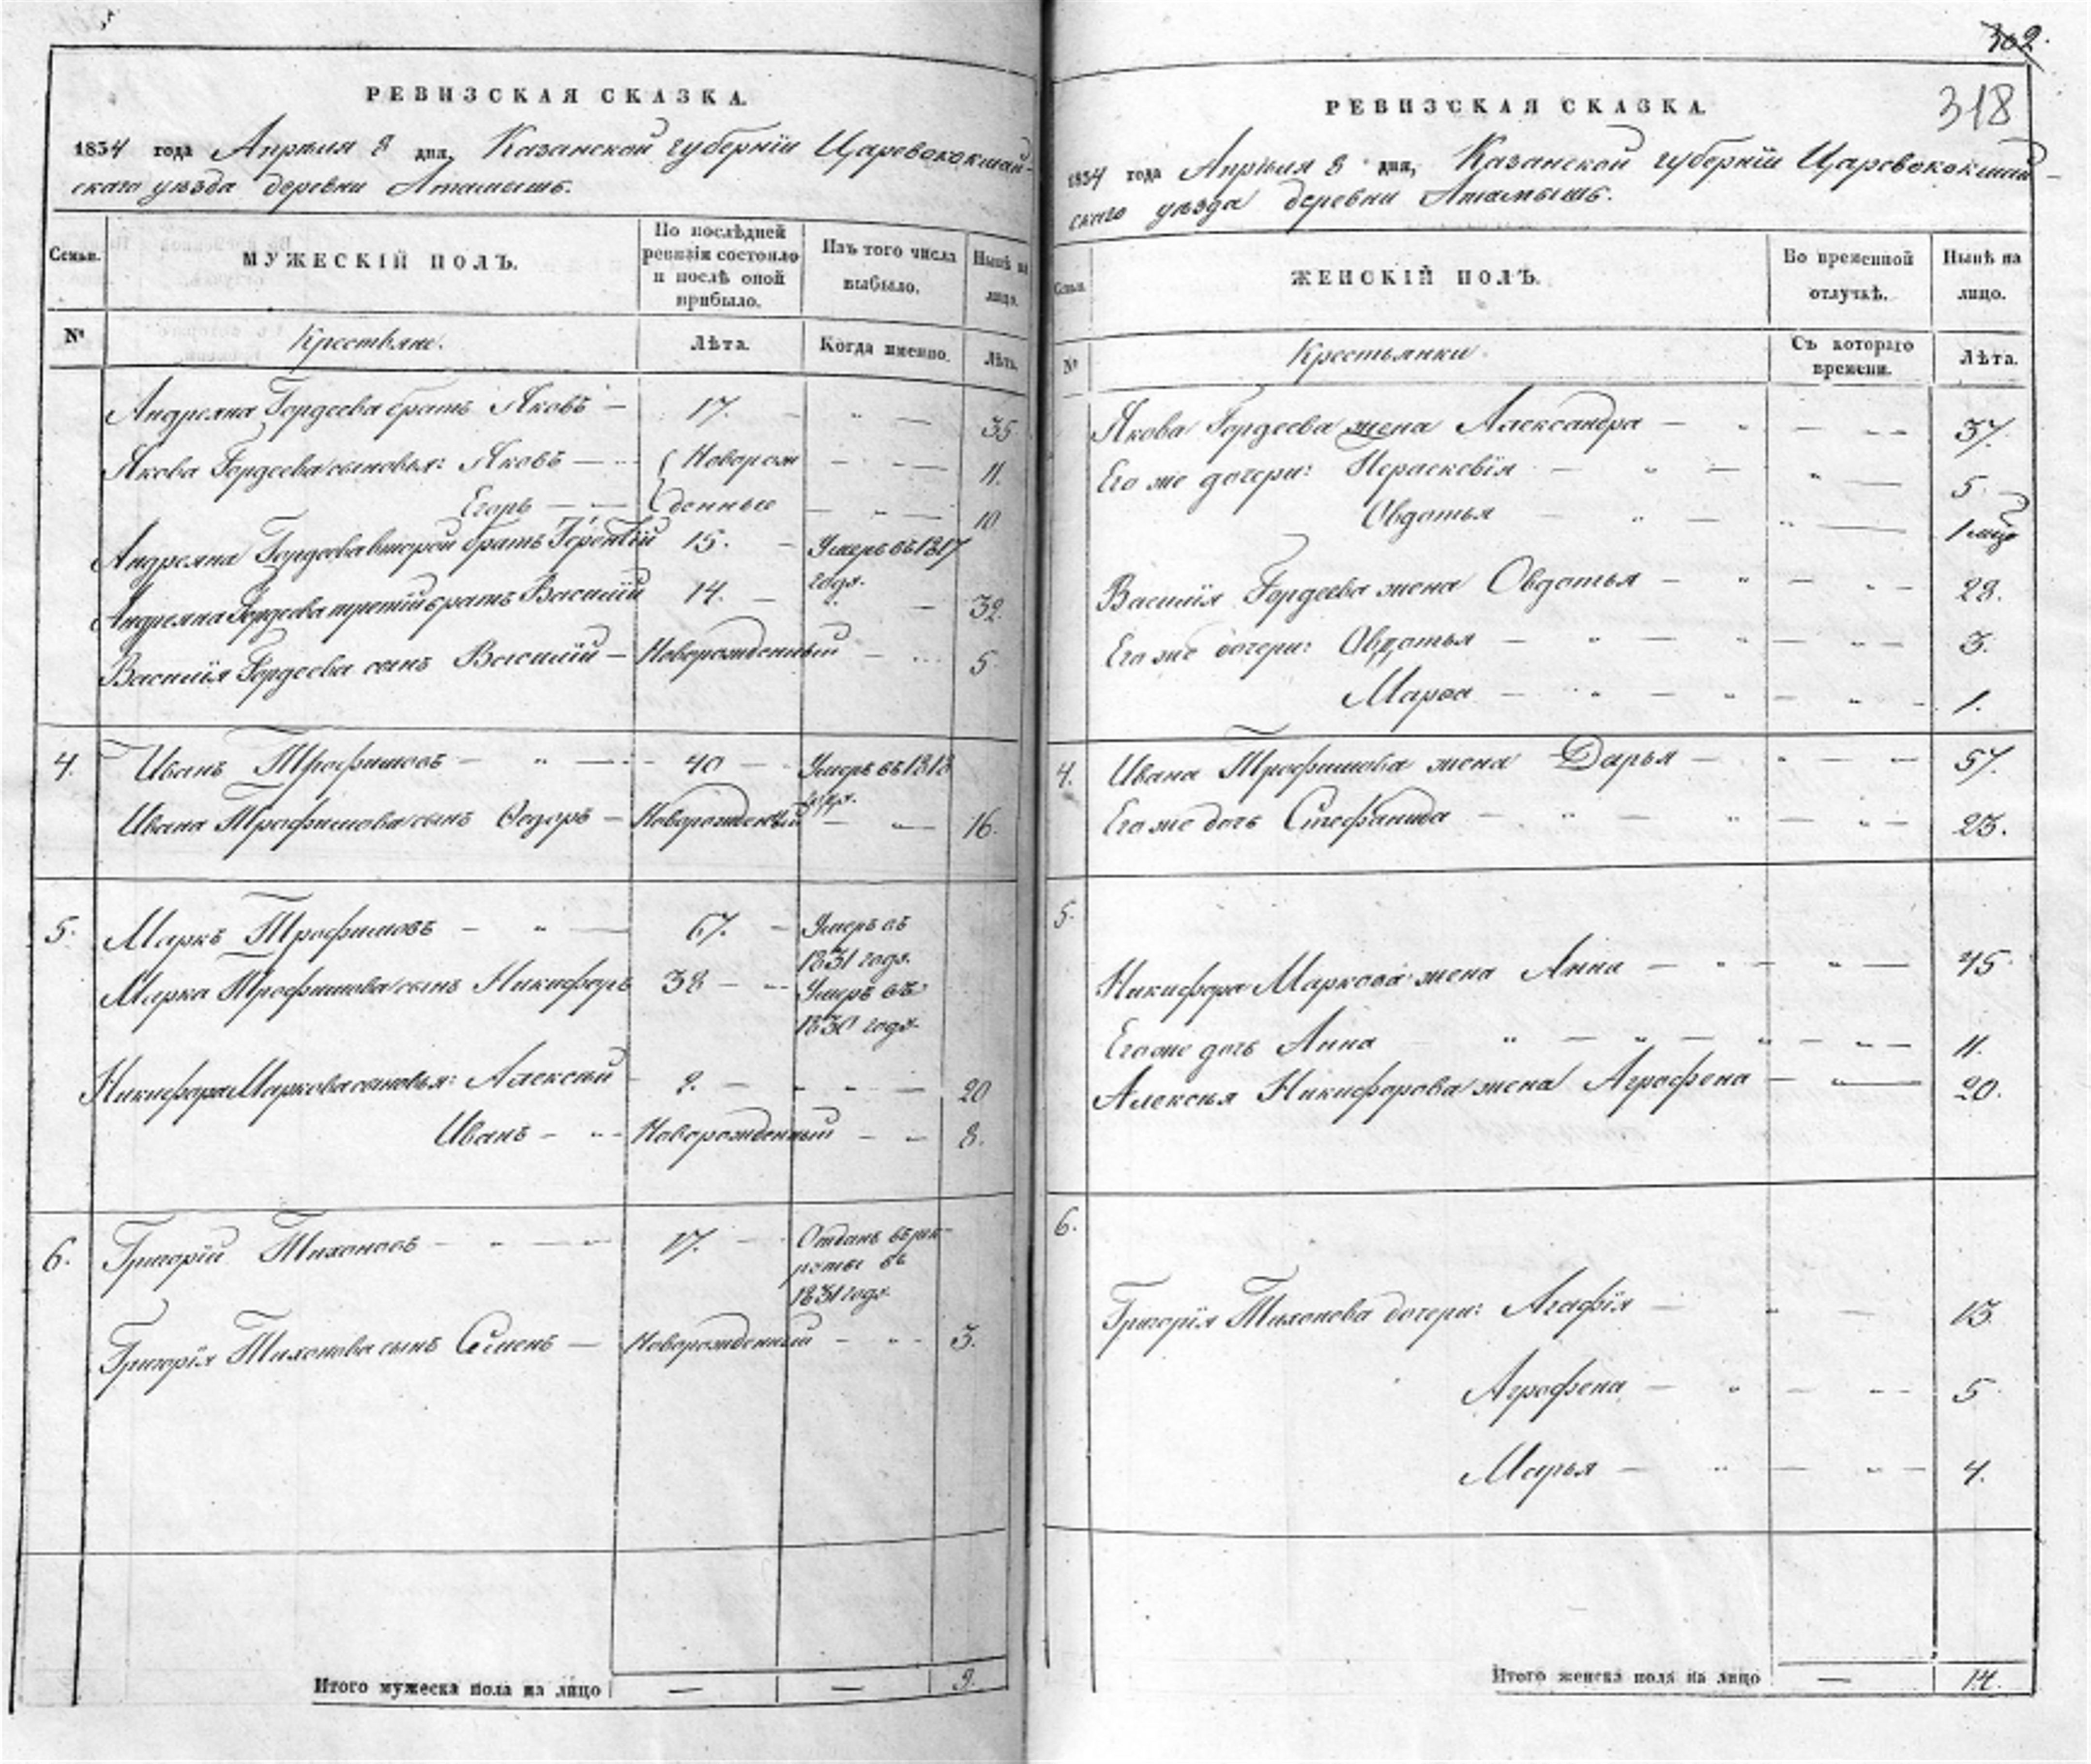 РЕВИЗСКАЯ СКАЗКА.
1834 года Апрѣля 8 дня, Казанской губерніи Царевококшай-
скаго уѣзда деревни Атамышъ.
Семьи.
МУЖЕСКІЙ ПОЛЪ.
По послѣдней ревизіи состояло и послѣ оной прибыло.
Изъ того числа выбыло.
Нынѣ на лицо.
№
Крестьяне.
Лѣта.
Когда именно.
Лѣта.
Андреяна Гордеева братъ Яковъ — 17. — „ — 35.
Якова Гордеева сыновья: Яковъ — Новорож — „ — 11.
Егоръ — денные — „ — 10
Андреяна Гордеева второй братъ Терентій 15. — Умеръ въ 1817
года.
Андреяна Гордеева третій братъ Василій 14. — „ — 32.
Василія Гордеева сынъ Василій — Новорожденный — 5.
4. Иванъ Трофимовъ — „ — 40 — Умеръ въ 1818
года.
Ивана Трофимова сынъ Ѳедоръ — Новорожденный — „ — 16.
5. Маркъ Трофимовъ — „ — 67. — Умеръ въ
1831 года.
Марка Трофимова сынъ Никифоръ 38 — Умеръ въ
1830 года.
Никифора Маркова сыновья: Алексѣй 2. — 20
Иванъ — Новорожденный — — 8.
6. Григорій Тихоновъ — „ — 17. — Отданъ въ рек-
руты въ
1831 года.
Григорія Тихонова сынъ Семенъ — Новорожденный — „ - 3.
Итого мужеска пола на лицо — — 9.
302.
318
РЕВИЗСКАЯ СКАЗКА.
1834 года Апрѣля 8 дня, Казанской губерніи Царевококшай-
скаго уѣзда деревни Атамышъ.
Семьи.
ЖЕНСКІЙ ПОЛЪ.
Во временной отлучкѣ.
Нынѣ на лицо.
№
Крестьянки.
Съ котораго времени.
Лѣта.
Якова Гордеева жена Александра — „ — 37.
Его же дочери: Парасковія — „ — 5.
Овдотья — „ — 1 мѣс
Василія Гордеева жена Овдотья — „ — 28.
Его же дочери: Овдотья — „ — 3.
Марѳа — „ — 1.
4. Ивана Трофимова жена Дарья — „ — 57.
Его же дочь Степанида — „ — 23.
5.
Никифора Маркова жена Анна — „ — 45.
Его же дочь Анна „ — „ — 11.
Алексѣя Никифорова жена Аграфена — „ — 20.
6.
Григорія Тихонова дочери: Агафія — „ — 13.
Аграфена — „ — 5
Марья — „ — 4.
Итого женска пола на лицо — 14.